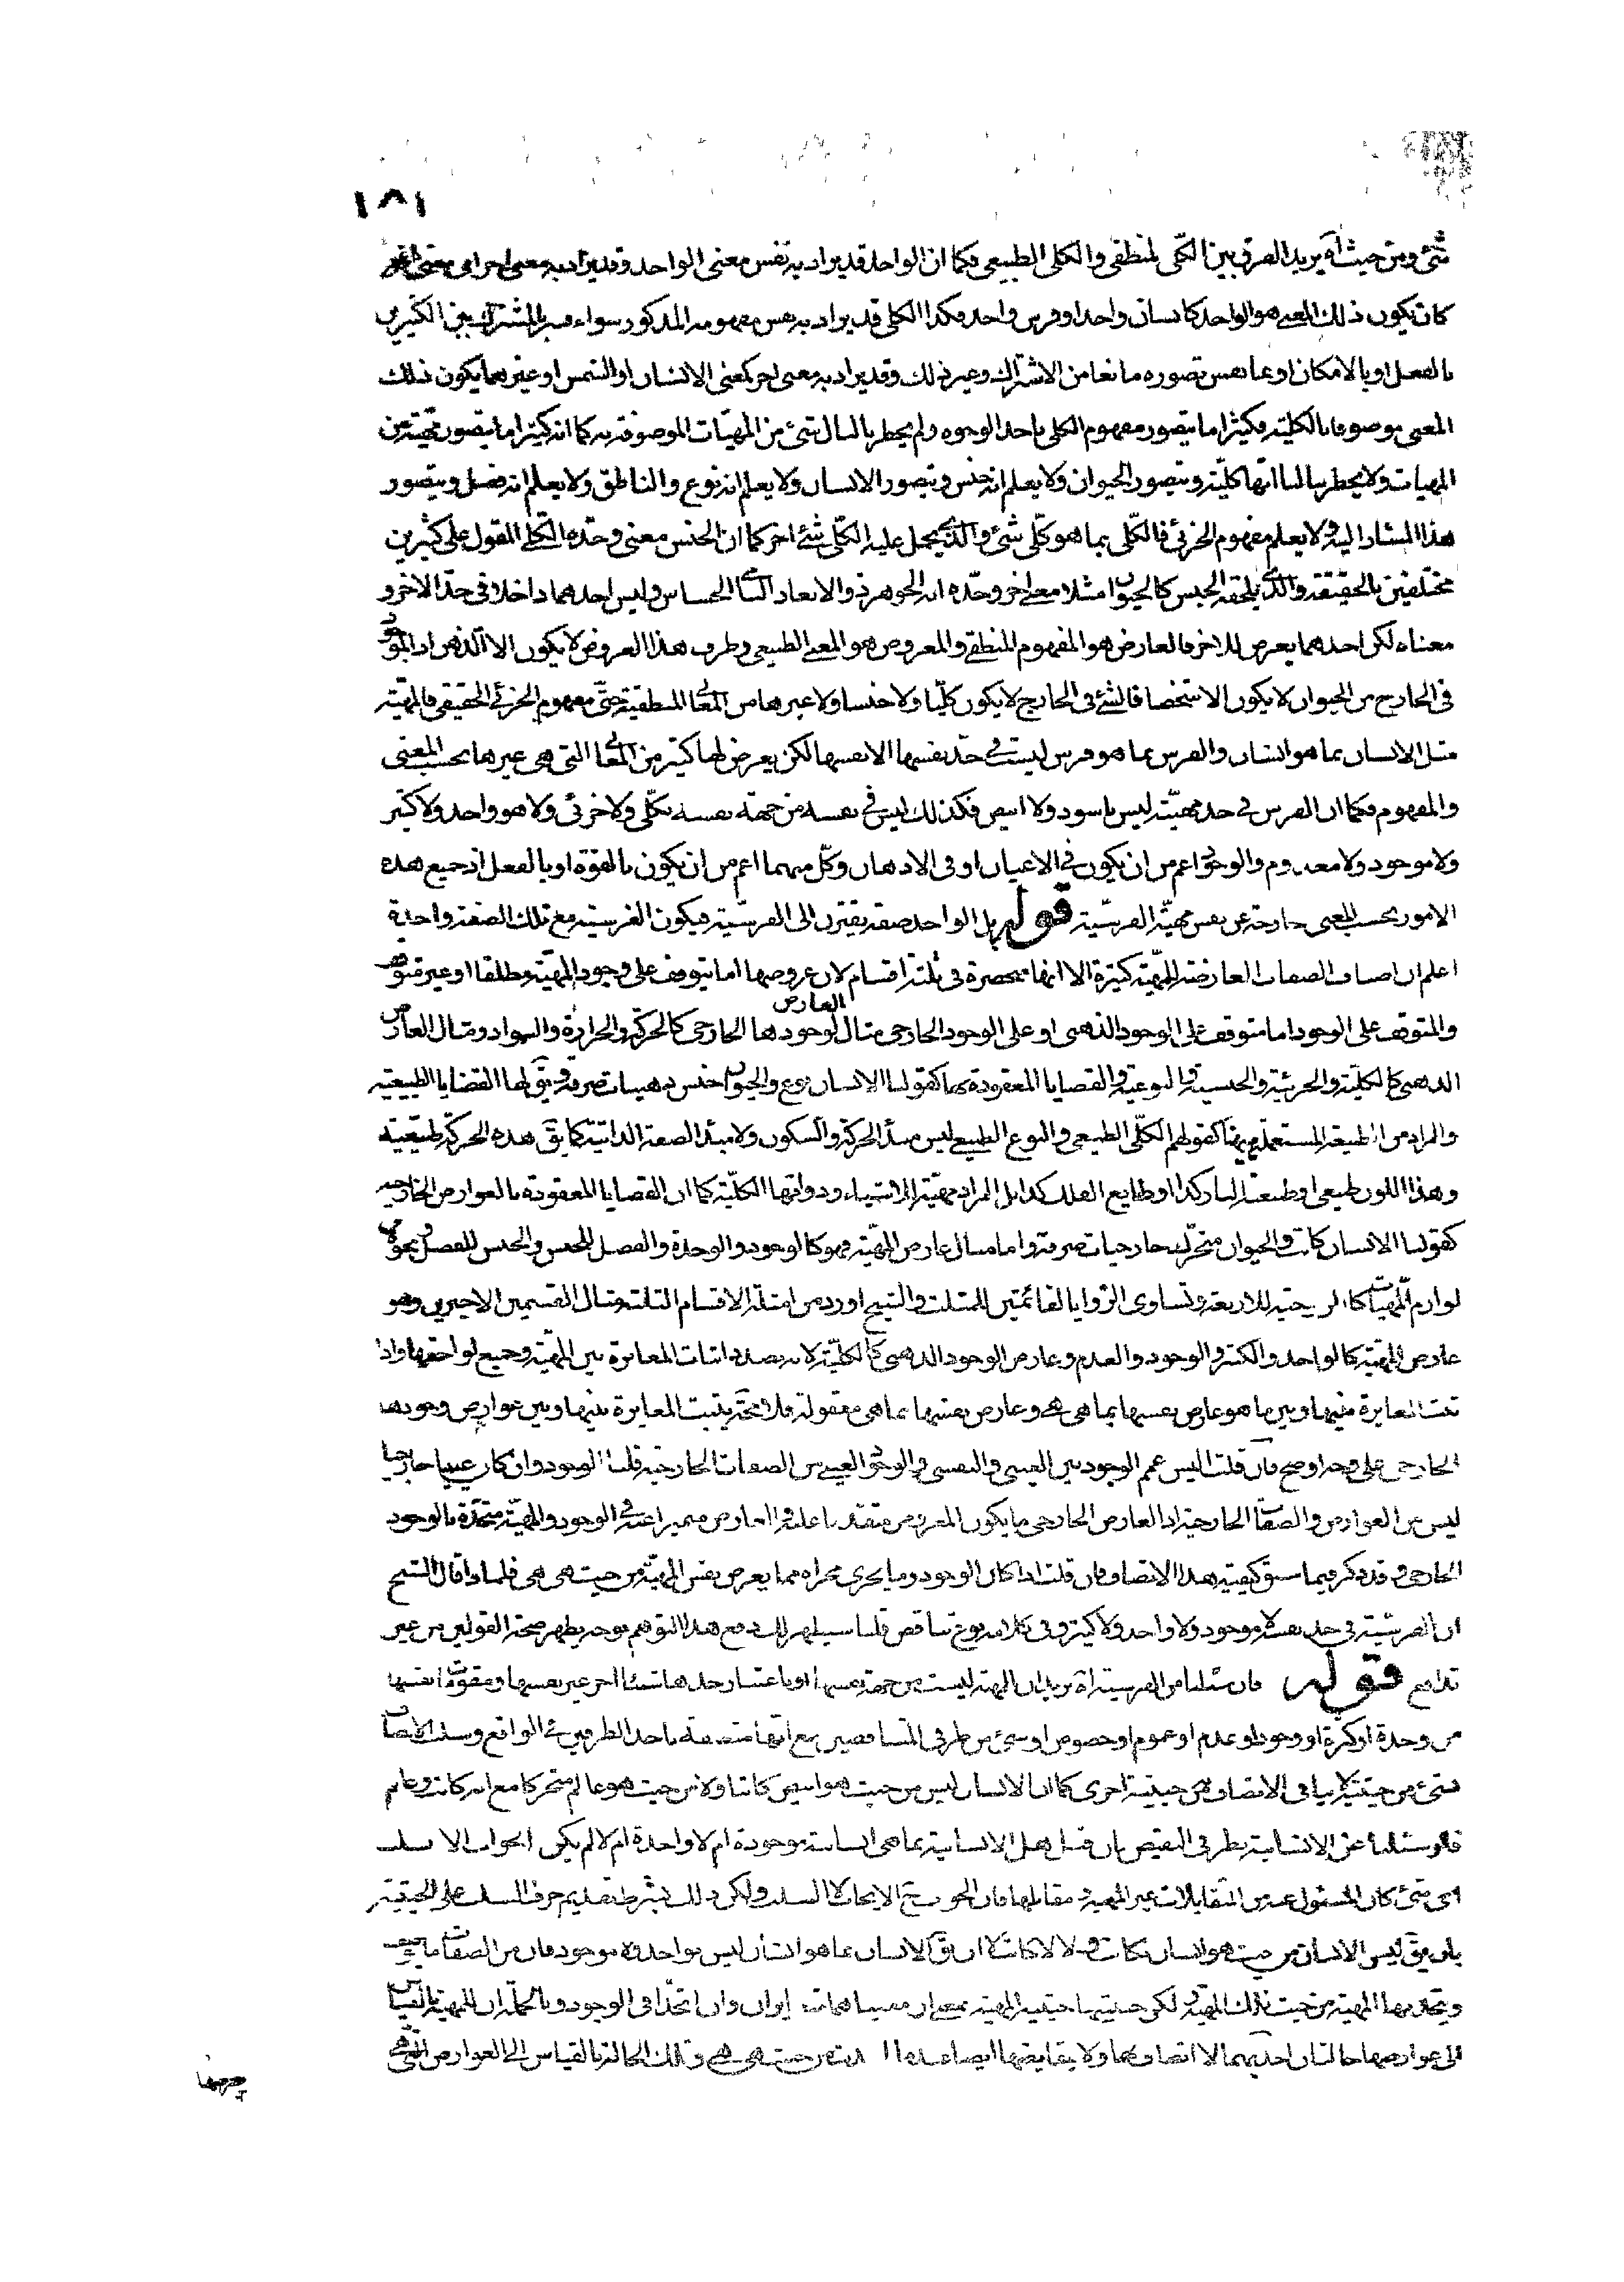 ١٨١
شئ ومن حيث آه يريد الفرق بين الكلي المنطقي والكلي الطبيعي فكما ان الواحد قد يراد به نفس معنى الواحد وقد يراد به معنى اخر اي معنى
كان يكون ذلك المعنى هو الواحد كانسان واحد او فرس واحد فكذا الكلي قد يراد به نفس مفهومه المذكور سواء فسر بالمشترك بين الكثيرين
بالفعل او بالامكان او بما نفس تصوره مانعا من الاشتراك وغير ذلك وقد يراد به معنى اخر كمعنى الانسان او الشمس او غيرهما يكون ذلك
المعنى موصوفا بالكلية فكثيرا ما يتصور مفهوم الكلي باحد الوجوه ولم يخطر بالبال شئ من المهيات الموصوفة به كما انه كثيرا ما يتصور مهية من
المهيات ولا يخطر ببالنا انها كلية ويتصور الحيوان ولا يعلم انه جنس ويتصور الانسان ولا يعلم انه نوع والناطق ولا يعلم انه فصل ويتصور
هذا المشار اليه ولا يعلم مفهوم الجزئي فالكلي بما هو كلي شئ والذي يحمل عليه الكلي شئ اخر كما ان الجنس معنى وحده الكلي المقول على كثيرين
مختلفين بالحقيقة والذي يلحقه الجنس كالحيوان مثلا معنى اخر وحده انه الجوهر ذو الابعاد النامي الحساس وليس احدهما داخلا في حد الاخر و
معناه لكن احدهما يعرض للاخر فالعارض هو المفهوم المنطقي والمعروض هو المعنى الطبيعي وظرف هذا العروض لا يكون الا الذهن اذ الموجود
في الخارج من الحيوان لا يكون الا شخصا فالشئ في الخارج لا يكون كليا ولا جنسا ولا غيرها من المعاني المنطقية حتى مفهوم الجزئي الحقيقي فالمهية
مثل الانسان بما هو انسان والفرس بما هو فرس ليست في حد نفسها الا نفسها لكن يعرض لها كثير من المعاني التي هي غيرها بحسب المعنى
والمفهوم فكما ان الفرس في حد مهيته ليس باسود ولا ابيض فكذلك ليس في نفسه من جهة نفسه بكلي ولا جزئي ولا هو واحد ولا كثير
ولا موجود ولا معدوم والوجود اعم من ان يكون في الاعيان او في الاذهان وكل منهما اعم من ان يكون بالقوة او بالفعل اذ جميع هذه
الامور بحسب المعنى خارجة عن نفس مهية الفرسية قوله بل الواحد صفة يقترن الى الفرسية فيكون الفرسية مع تلك الصفة واحدة
اعلم ان اصناف الصفات العارضة للمهية كثيرة الا انها منحصرة في ثلثة اقسام لان عروضها اما يتوقف على وجود المهية مطلقا او غير متوقف
والمتوقف على الوجود اما متوقف على الوجود الذهني او على الوجود الخارجي مثال العارض لوجودها الخارجي كالحركة والحرارة والسواد ومثال العارض
الذهني كالكلية والجزئية والجنسية والنوعية والقضايا المعقودة بها كقولنا الانسان نوع والحيوان جنس ذهنيات صرفة ويق لها القضايا الطبيعية
والمراد من الطبيعة المستعملة كقولهم الكلي الطبيعي والنوع الطبيعي ليس مبدأ الحركة والسكون ولا مبدأ الصفة الذاتية كما يق هذه الحركة طبيعية
وهذا اللون طبيعي او طبيعة النار كذا او طبايع الفلك كذا بل المراد مهية الاشياء وذواتها الكلية كما ان القضايا المعقودة بالعوارض الخارجية
كقولنا الانسان كاتب والحيوان متحرك خارجيات صرفة واما مثال عارض المهية فهو كالوجود والوحدة والفصل للجنس والجنس للفصل ونحوه من
لوازم المهيات كالزوجية للاربعة وتساوي الزوايا لقائمتين للمثلث والشيخ اورد من امثلة الاقسام الثلثة مثال القسمين الاخيرين وهو
عارض المهية كالواحد والكثير والوجود والعدم وعارض الوجود الذهني كالكلية لانه بصدد اثبات المغايرة بين المهية وجميع لواحقها واذا
ثبت المغايرة بينها وبين ما هو عارض نفسها بما هي هي وعارض نفسها بما هي معقولة فلا محة يثبت المغايرة بينها وبين عوارض وجودها
الخارجي على وجه اوضح فان قلت اليس عمم الوجود بين العيني والنفسي والوجود العيني من الصفات الخارجية قلت الوجود وان كان عينيا خارجيا
ليس من العوارض والصفات الخارجية اذ العارض الخارجي ما يكون المعروض متقدما عليه والعارض متميزا عنه في الوجود والمهية متحدة بالوجود
الخارجي وقد ذكر فيما سبق كيفية هذا الاتصاف فان قلت اذا كان الوجود وما يجري مجراه مما يعرض نفس المهية من حيث هي هي فلماذا قال الشيخ
ان الفرسية في حد نفسها لا موجود ولا واحد ولا كثير وفي كلامه نوع تناقض قلنا سيظهر لك دفع هذا التوهم بوجه يظهر صحة القولين من غير
تدافع قوله فان سئلنا من الفرسية آه يريد ان المهية ليست من جهة نفسها او باعتبار حدها شيئا اخر غير نفسها ومقوماتها نفسها
من وحدة او كثرة او وجود او عدم او عموم او خصوص او شئ من طرفي المتناقضين مع انها متصفة باحد الطرفين في الواقع وسلب الاتصاف
بشئ من حيثية لا ينافي الاتصاف به من حيثية اخرى كما ان الانسان ليس من حيث هو ابيض كاتبا ولا من حيث هو عالم متحركا مع انه كاتب وعالم
فلو سئلنا عن الانسانية بطرفي النقيض بان قيل هل الانسانية بما هي انسانية موجودة ام لا واحدة ام لا لم يكن الجواب الا سلب
اي شئ كان المسئول عنه من المتقابلات غير المهية مقابلها فان الجواب الايجاب لا السلب ولكن ذلك بشرط تقديم حرف السلب على الحيثية
بان يق ليس الانسان من حيث هو انسان بكاتب ولا لا كاتب لا ان يق الانسان بما هو انسان ليس بواحد ولا موجود فان من الصفات ما
ويتحد بها المهية من حيث تلك المهية لكن حيثيتها حيثية المهية بمعنى ان معنياهما متغايران وان اتحدا في الوجود وبالجملة ان للمهية بالقياس
الى عوارضها حالتان احديهما الاتصاف بها ولا بنقايضها من حيث هي هي وتلك الحالة بالقياس الى العوارض التي